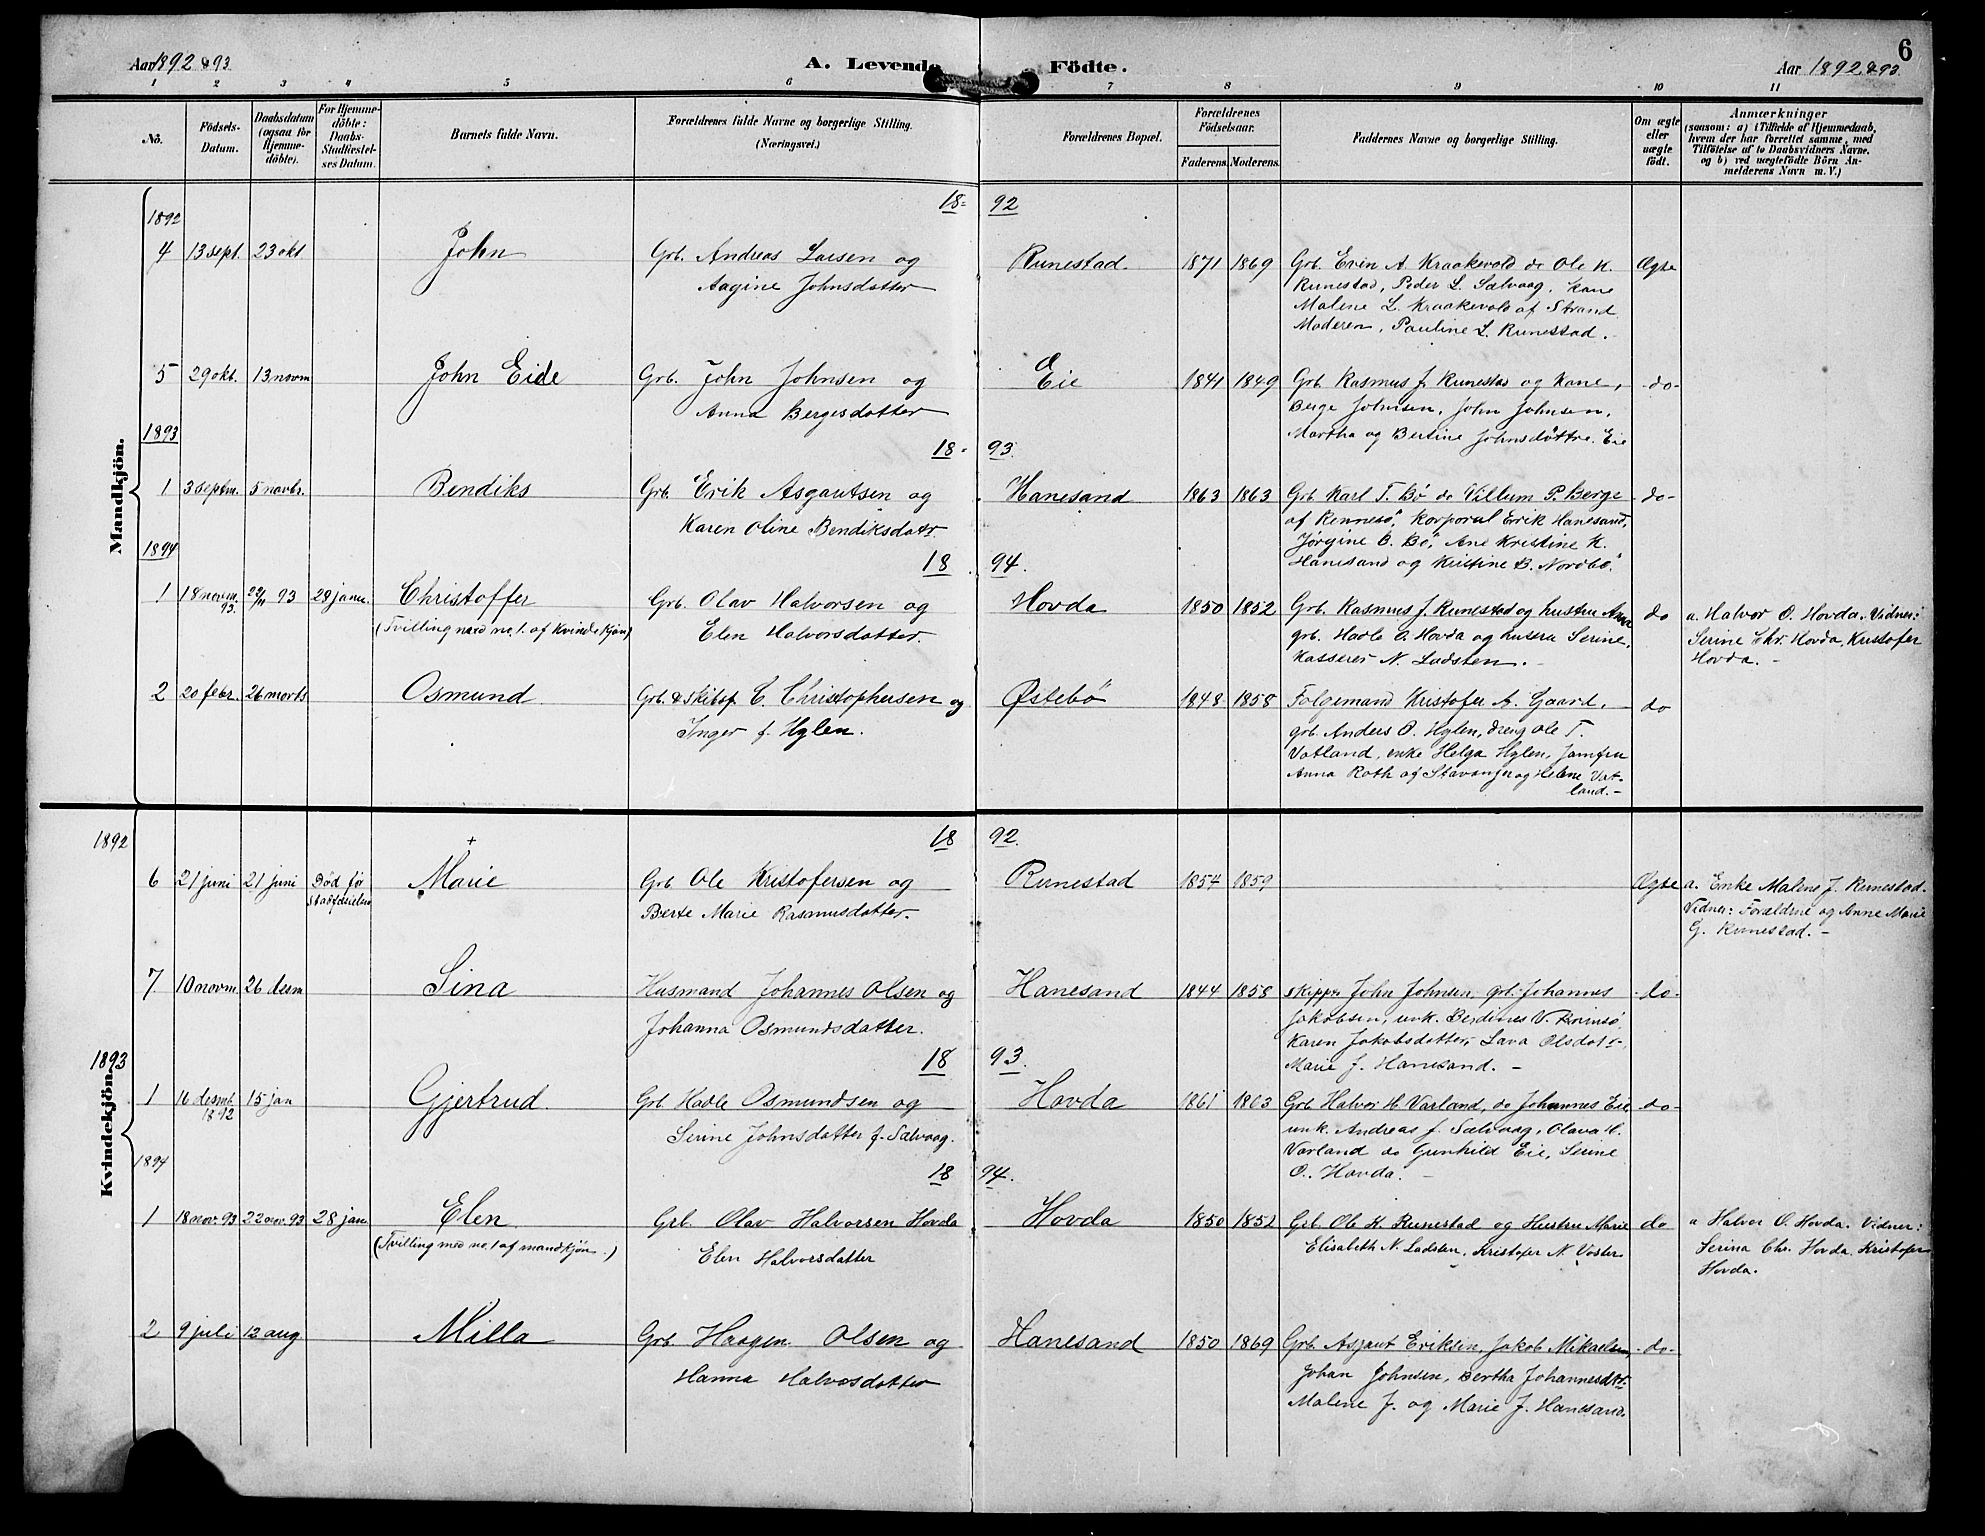 Aar 1892 & 93
A. Levende Födte.
Aar 1892 & 93.
6
1 2 3 4 5 6 7 8 9 10 11
No.
Födsels-Datum.
Daabsdatum (ogsaa for Hjemme-döbte).
For Hjemme-döbte: Daabs-Stadfæstel-ses Datum.
Barnets fulde Navn.
Forældrenes fulde Navne og borgerlige Stilling.
(Næringsvei.)
Forældrenes Bopæl.
Forældrenes Födselsaar.
Faderens. Moderens.
Faddernes Navne og borgerlige Stilling.
Om ægte eller uægte födt.
Anmærkninger
(saasom: a) i Tilfælde af Hjemmedaab,
hvem der har forrettet samme, med
Tilföielse af to Daabsvidners Navne.
og b) ved uægtefödte Börn An-
melderens Navn m. V.)
Mandkjön.
1892
18= 92
4 13 sept. 23 okt John Grb. Andreas Larsen og Runestad. 1871 1869 Grb. Even A. Kraakevold do Ole K. Ægte
Aagine Johnsdatter Runestad, Peder L. Salvaag, Kone
Malene L. Kraakevold af Strand
Moderen, Pauline L. Runestad.
5 29 okt. 13 novm John Eide Grb. John Johnsen og Eie 1841 1849 Grb. Rasmus J. Runestad og Kone, -do-
Anna Bergesdatter Berge Johnsen, John Johnsen,
Martha og Bertine Johnsdøttre. Eie
1893
18- 93.
1 3 septm. 5 novbr. Bendiks Grb. Erik Asgautsen og Hanesand 1863 1863 Grb Karl T. Bö do Villum P. Berge -do-
Karen Oline Bendiksdatr. af Rennesö, Korporal Erik Hanesand,
Jørgine B. Bö, Ane Kristine K.
Hanesand og Kristine B. Nordbö.
1894
18 94.
1 18 novm. 93. 22/11 93 28 janu. Christoffer Grb. Olav Halvorsen og Hovda 1850 1852 Grb. Rasmus J. Runestad og hustru Anna do a. Halvor O. Hovda. Vidner:
(Tvilling med no. 1. af Kvindekjøn) Elen Halvorsdatter. grb. Hadle O. Hovda og hustru Serine, Serine Chr. Hovda, Kristofer
Kasserer N. Ladsten. Hovda. -
2 20 febr. 26 marts Osmund Grb. & Skibsf. C. Christophersen og Østebö 1848 1858 Følgemand Kristofer A. Gaard, do
Inger f. Hylen. grb. Anders O. Hylen, dreng Ole T.
Vatland, enke Helga Hylen, Jomfru
Anna Roth af Stavanger og Helene Vat-
land. -
Kvindekjön.
1892
18 92.
6 21 juni 21 juni Død før Stadfæstelsen + Marie Grb Ole Kristofersen og Runestad 1854 1859 Ægte a. Enke Malene J. Runestad.
Berte Marie Rasmusdatter. Vidner: Forældrene og Anne Marie
G. Runestad. -
7. 10 novm 26 desm Sina Husmand Johannes Olsen og Hanesand 1844 1858 Skipper John Johnsen, grb. Johannes -do-
Johanna Osmundsdatter. Jakobsen, unk. Berdines V.
Karen Jakobsdatter, Lava Olsdatr.
Marie J. Hanesand. -
1893
18 93.
1 16 desmb. 1892 15 jan Gjertrud. Grb Hadle Osmundsen og Hovda 1861 1863 Grb Halvor H. Varland, do Johannes Eie, -do-
Serine Johnsdatter f. Salvaag. unk. Andreas J. Salvaag, Olava H.
Varland do Gunhild Eie, Serine
O. Hovda. -
1894
18 94.
1 18 nov. 93 22 nov. 93 28 jan. Elen Grb. Olav Halvorsen Hovda Hovda 1850 1852 Grb. Ole K. Runestad og Hustru Marie do a Halvor O. Hovda. Vidner:
(Tvilling med no. 1 af mandkjøn.) Elen Halvorsdatter Elisabeth N. Ladsten, Kristofer N. Voster Serina Chr. Hovda, Kristofer
Hovda.
2 9 juli 12 aug Milla Grb. Haagen Olsen og Hanesand 1850 1869 Grb. Asgaut Eriksen, Jakob Mikaelsen, -do-
Hanna Halvorsdatter Johan Johnsen, Bertha Johannesdatr.
Malene J. og Marie J. Hanesand.